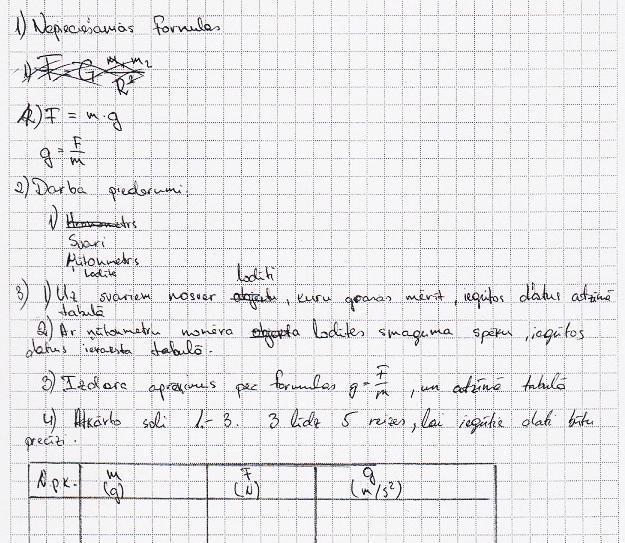 1) Nepieciešamās formulas
1) F = G m₁ m₂ / R²
1) F = m · g
g = F/m
2) Darba piederumi:
1)
Svari
Ņūtonmetrs
Lodīte
3) 1) Uz svariem nosver lodīti, kuru gravas mērīt, iegūtos datus atzīmē
tabulā
2) Ar ņūtonmetru nomēra lodītes smaguma spēku, iegūtos
datus ieraksta tabulā.
3) Izdara aprēķinus pēc formulas g = F/m, un atzīmē tabulā
4) Atkārto soli 1.-3. 3 līdz 5 reizes, lai iegūtie dati būtu
precīzi.
N.pk. m (g) F (N) g (m/s²)